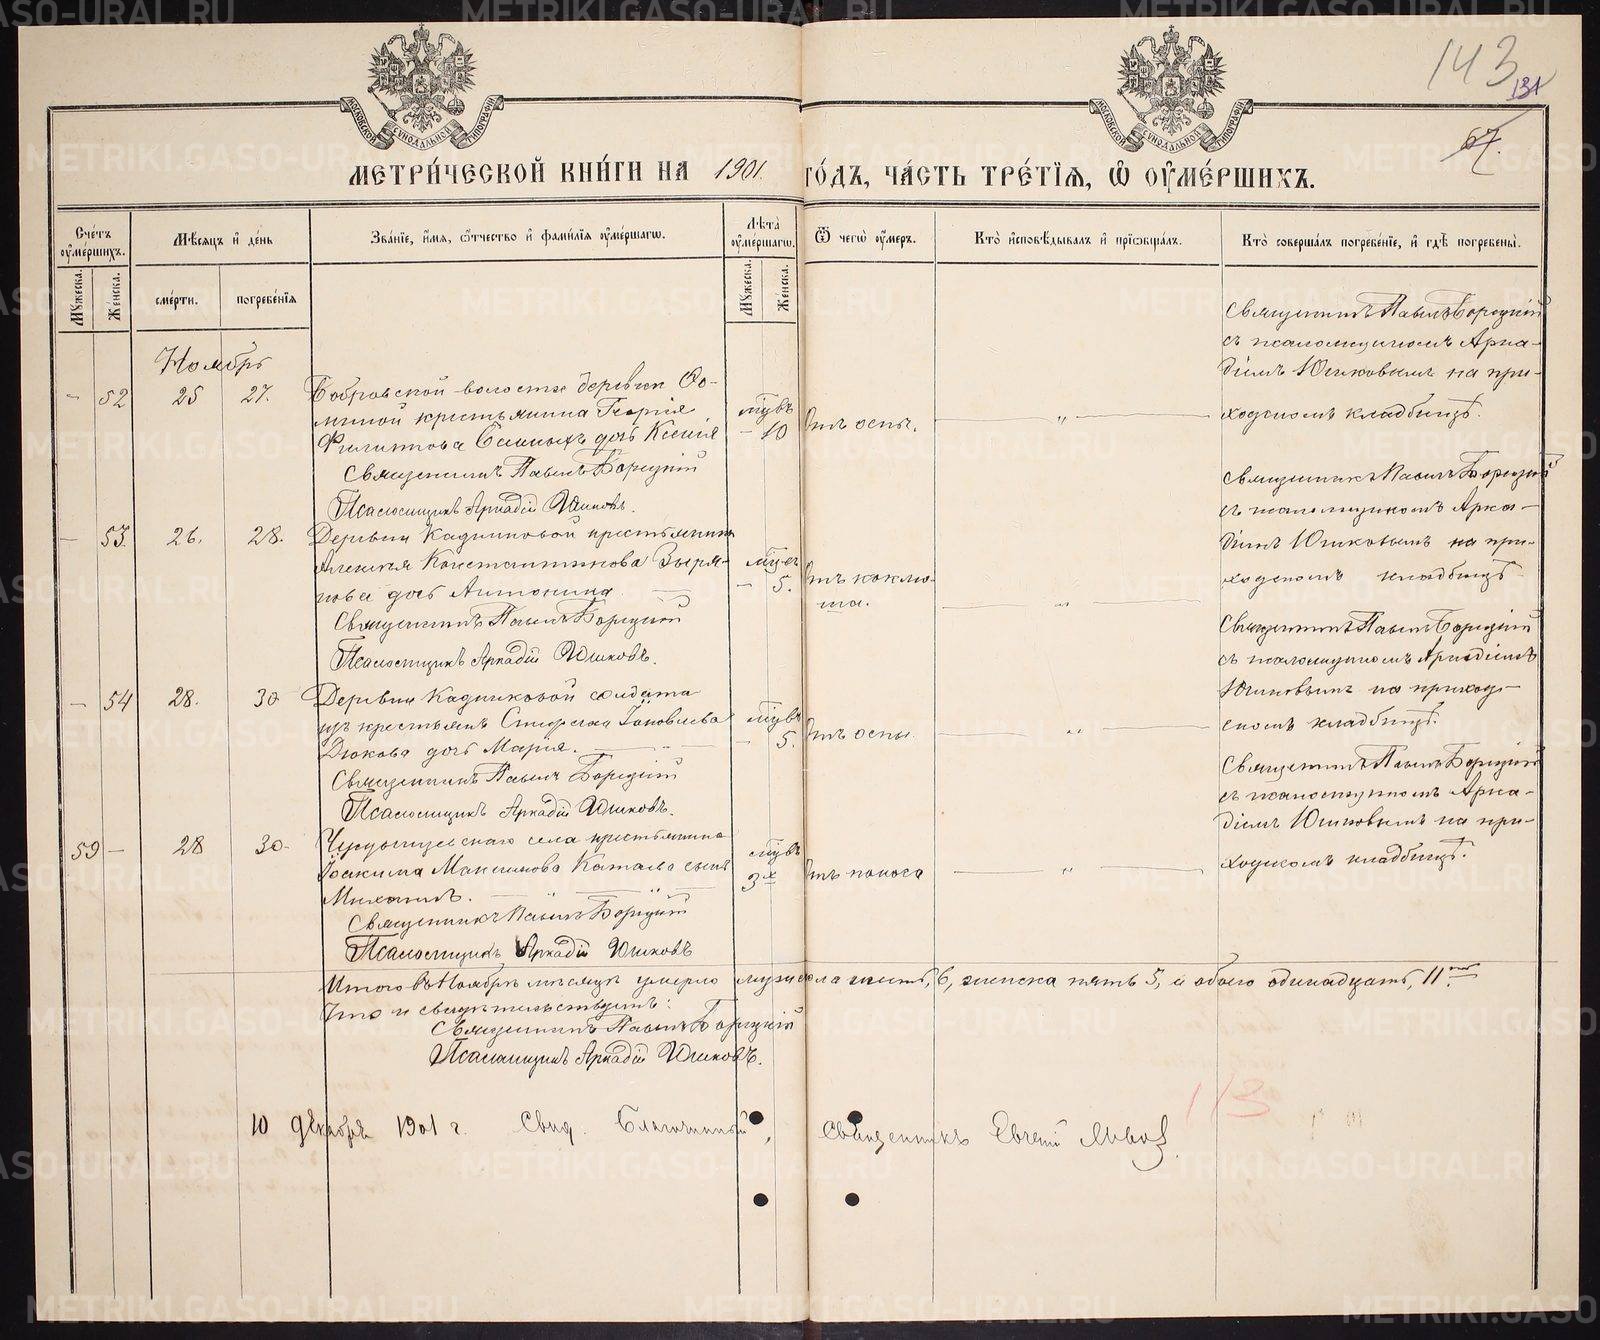 143
131
67.
МОСКОВСКОЙ СѴНОДАЛЬНОЙ ТИПОГРАФІИ
МОСКОВСКОЙ СѴНОДАЛЬНОЙ ТИПОГРАФІИ
МЕТРИ́ЧЕСКОЙ КНИ́ГИ НА 1901. ГО́ДЪ, ЧА́СТЬ ТРЕ́ТІѦ, Ѡ ОУ҆МЕ́РШИХЪ.
Сче́тъ оу҆ме́ршихъ.
Мѣ́сяцъ и҆ де́нь
Зва́нїе, и҆́мѧ, ѻ҆́тчество и҆ фами́лїѧ оу҆ме́ршагѡ.
Лѣ́та оу҆ме́ршагѡ.
Ѿ чегѡ̀ оу҆́меръ.
Кто̀ и҆сповѣ́дывалъ и҆ прїѡбща́лъ.
Кто̀ соверша́лъ погребе́нїе, и҆ гдѣ̀ погребены̀.
Мꙋ́жеска.
Же́нска.
сме́рти.
погребе́нїѧ
Мꙋ́жеска.
Же́нска.
Ноябрь
– 52 25 27.
Бобровской волости деревни Фо-
миной крестьянина Георгія
Филиппова дочь Ксенія
Священникъ Павелъ Борецкій
Псаломщикъ Аркадій Юшковъ.
– 10
отъ оспы.
"
Священникъ Павелъ Борецкій
съ псаломщикомъ Арка-
діемъ Юшковымъ на при-
ходскомъ кладбищѣ.
– 53. 26. 28.
Деревни Кадниковой крестьянина
Алексѣя Константинова Зыря-
нова дочь Антонина
Священникъ Павелъ Борецкій
Псаломщикъ Аркадій Юшковъ.
– 5.
отъ коклю-
ша.
"
Священникъ Павелъ Борецкій
съ псаломщикомъ Арка-
діемъ Юшковымъ на при-
ходскомъ кладбищѣ
– 54 28. 30
Деревни Кадниковой солдата
изъ крестьянъ Іаковлева
Дюкова дочь Марія.
Священникъ Павелъ Борецкій
Псаломщикъ Аркадій Юшковъ.
– 5.
отъ оспы.
"
Священникъ Павелъ Борецкій
съ псаломщикомъ Аркадіемъ
Юшковымъ на приход-
скомъ кладбищѣ.
59 – 28 30
села крестьянина
Іоакима Максимова сынъ
Михаилъ.
Священникъ Павелъ Борецкій
Псаломщикъ Аркадій Юшковъ
3х
отъ поноса
"
Священникъ Павелъ Борецкій
съ псаломщикомъ Арка-
діемъ Юшковымъ на при-
ходскомъ кладбищѣ.
Итого въ Ноябрѣ мѣсяцѣ умерло мужескa шесть, 6, женска пять 5, а обоего одинадцать, 11.
Что и свидѣтельствуемъ:
Священникъ Павелъ Борецкій
Псаломщикъ Аркадій Юшковъ.
10 Декабря 1901 г. Свид. Благочинный, священникъ Евгеній
113